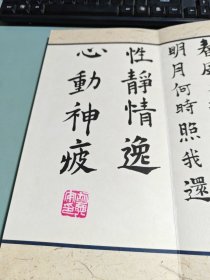 明月何時照我還
性靜情逸
心動神疲